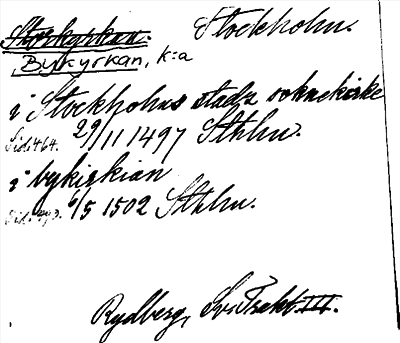 Storkyrkan. Stockholm.
Bykyrkan, k:a
i Stockholms stadz soknekirke
Sid. 464. 29/11 1497 Sthlm.
i bykirkian
Sid. 493. 6/5 1502 Sthlm.
Rydberg, Sv. Trakt. III.